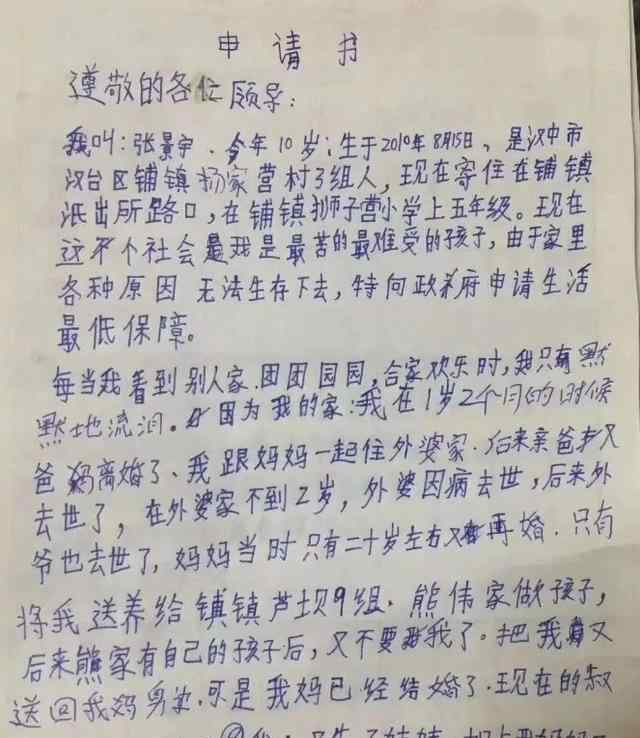 申请书
遵敬的各位领导：
我叫：张景宇、今年10岁；生于2010年8月15日，是汉中市
汉台区铺镇杨家营村3组人，现在寄住在铺镇
派出所路口，在铺镇狮子营小学上五年级。现在
这个社会是我是最苦的最难受的孩子，由于家里
各种原因 无法生存下去，特向政府申请生活
最低保障。
每当我看到别人家.团团园园，合家欢乐时，我只有默
默地流泪。因为我的家：我在1岁2个月的时候
爸妈离婚了、我跟妈妈一起住外婆家．后来亲爸又
去世了，在外婆家不到2岁，外婆因病去世，后来外
爷也去世了，妈妈当时只有二十岁左右又再婚．只有
将我送养给镇镇芦坝9组．熊伟家做孩子，
后来熊家有自己的孩子后，又不要我了。把我又
送回我妈身边．可是我妈已经结婚了．现在的叔